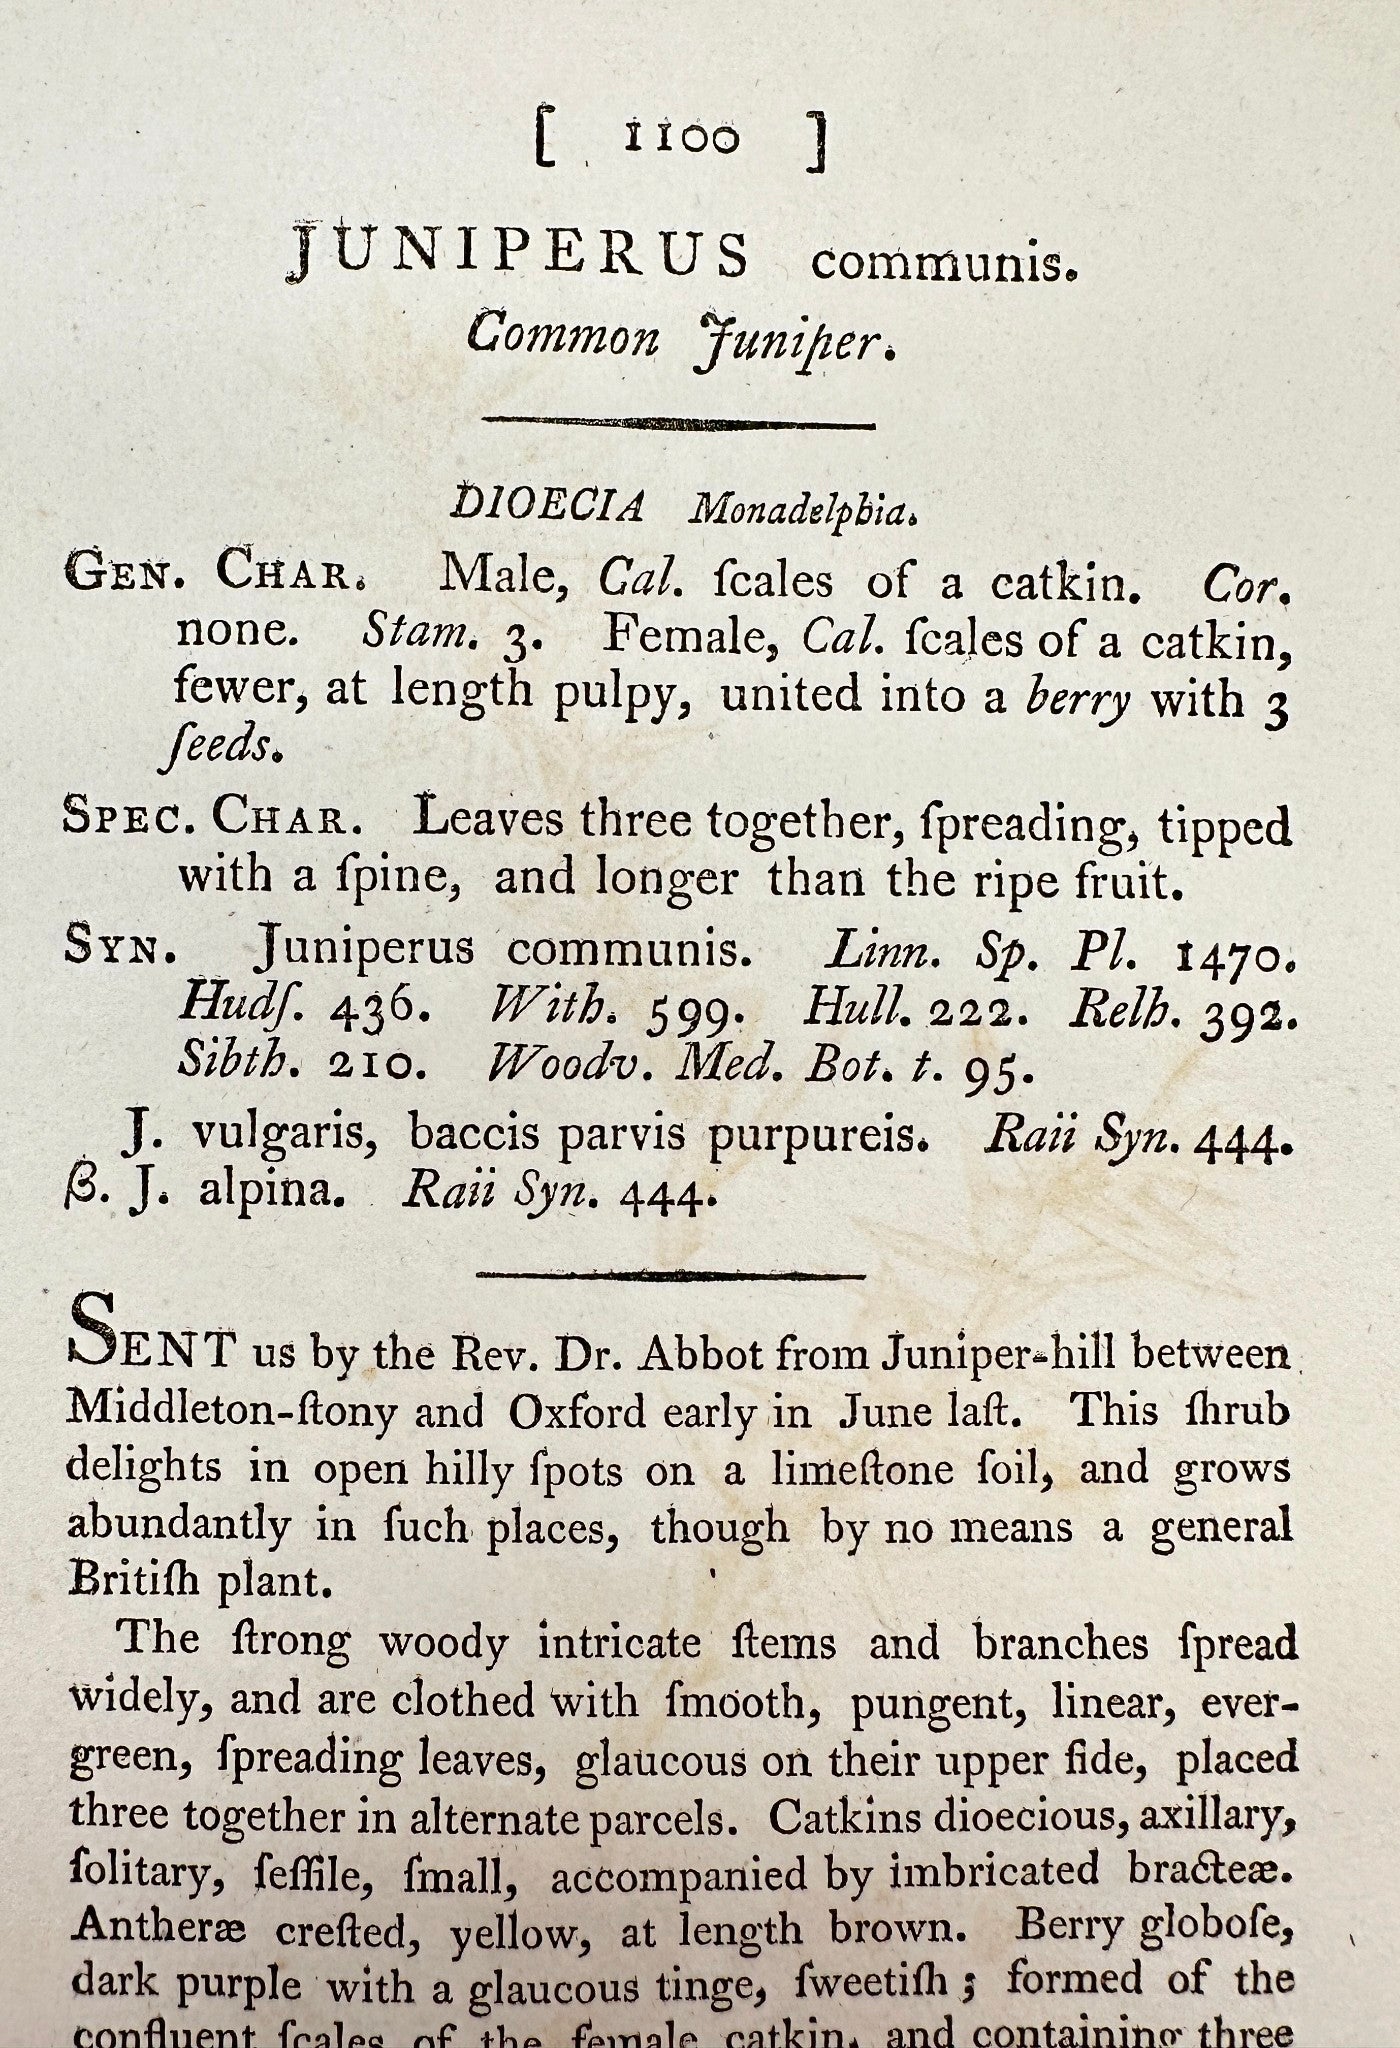 [ 1100 ]
JUNIPERUS communis.
Common Juniper.
DIOECIA Monadelphia.
GEN. CHAR. Male, Cal. ſcales of a catkin. Cor.
none. Stam. 3. Female, Cal. ſcales of a catkin,
fewer, at length pulpy, united into a berry with 3
ſeeds.
SPEC. CHAR. Leaves three together, ſpreading, tipped
with a ſpine, and longer than the ripe fruit.
SYN. Juniperus communis. Linn. Sp. Pl. 1470.
Hudſ. 436. With. 599. Hull. 222. Relh. 392.
Sibth. 210. Woodv. Med. Bot. t. 95.
J. vulgaris, baccis parvis purpureis. Raii Syn. 444.
β. J. alpina. Raii Syn. 444.
SENT us by the Rev. Dr. Abbot from Juniper-hill between
Middleton-ſtony and Oxford early in June laſt. This ſhrub
delights in open hilly ſpots on a limeſtone ſoil, and grows
abundantly in ſuch places, though by no means a general
Britiſh plant.
The ſtrong woody intricate ſtems and branches ſpread
widely, and are clothed with ſmooth, pungent, linear, ever-
green, ſpreading leaves, glaucous on their upper ſide, placed
three together in alternate parcels. Catkins dioecious, axillary,
ſolitary, ſeſſile, ſmall, accompanied by imbricated bracteæ.
Antheræ creſted, yellow, at length brown. Berry globoſe,
dark purple with a glaucous tinge, ſweetiſh; formed of the
confluent ſcales of the female catkin, and containing three